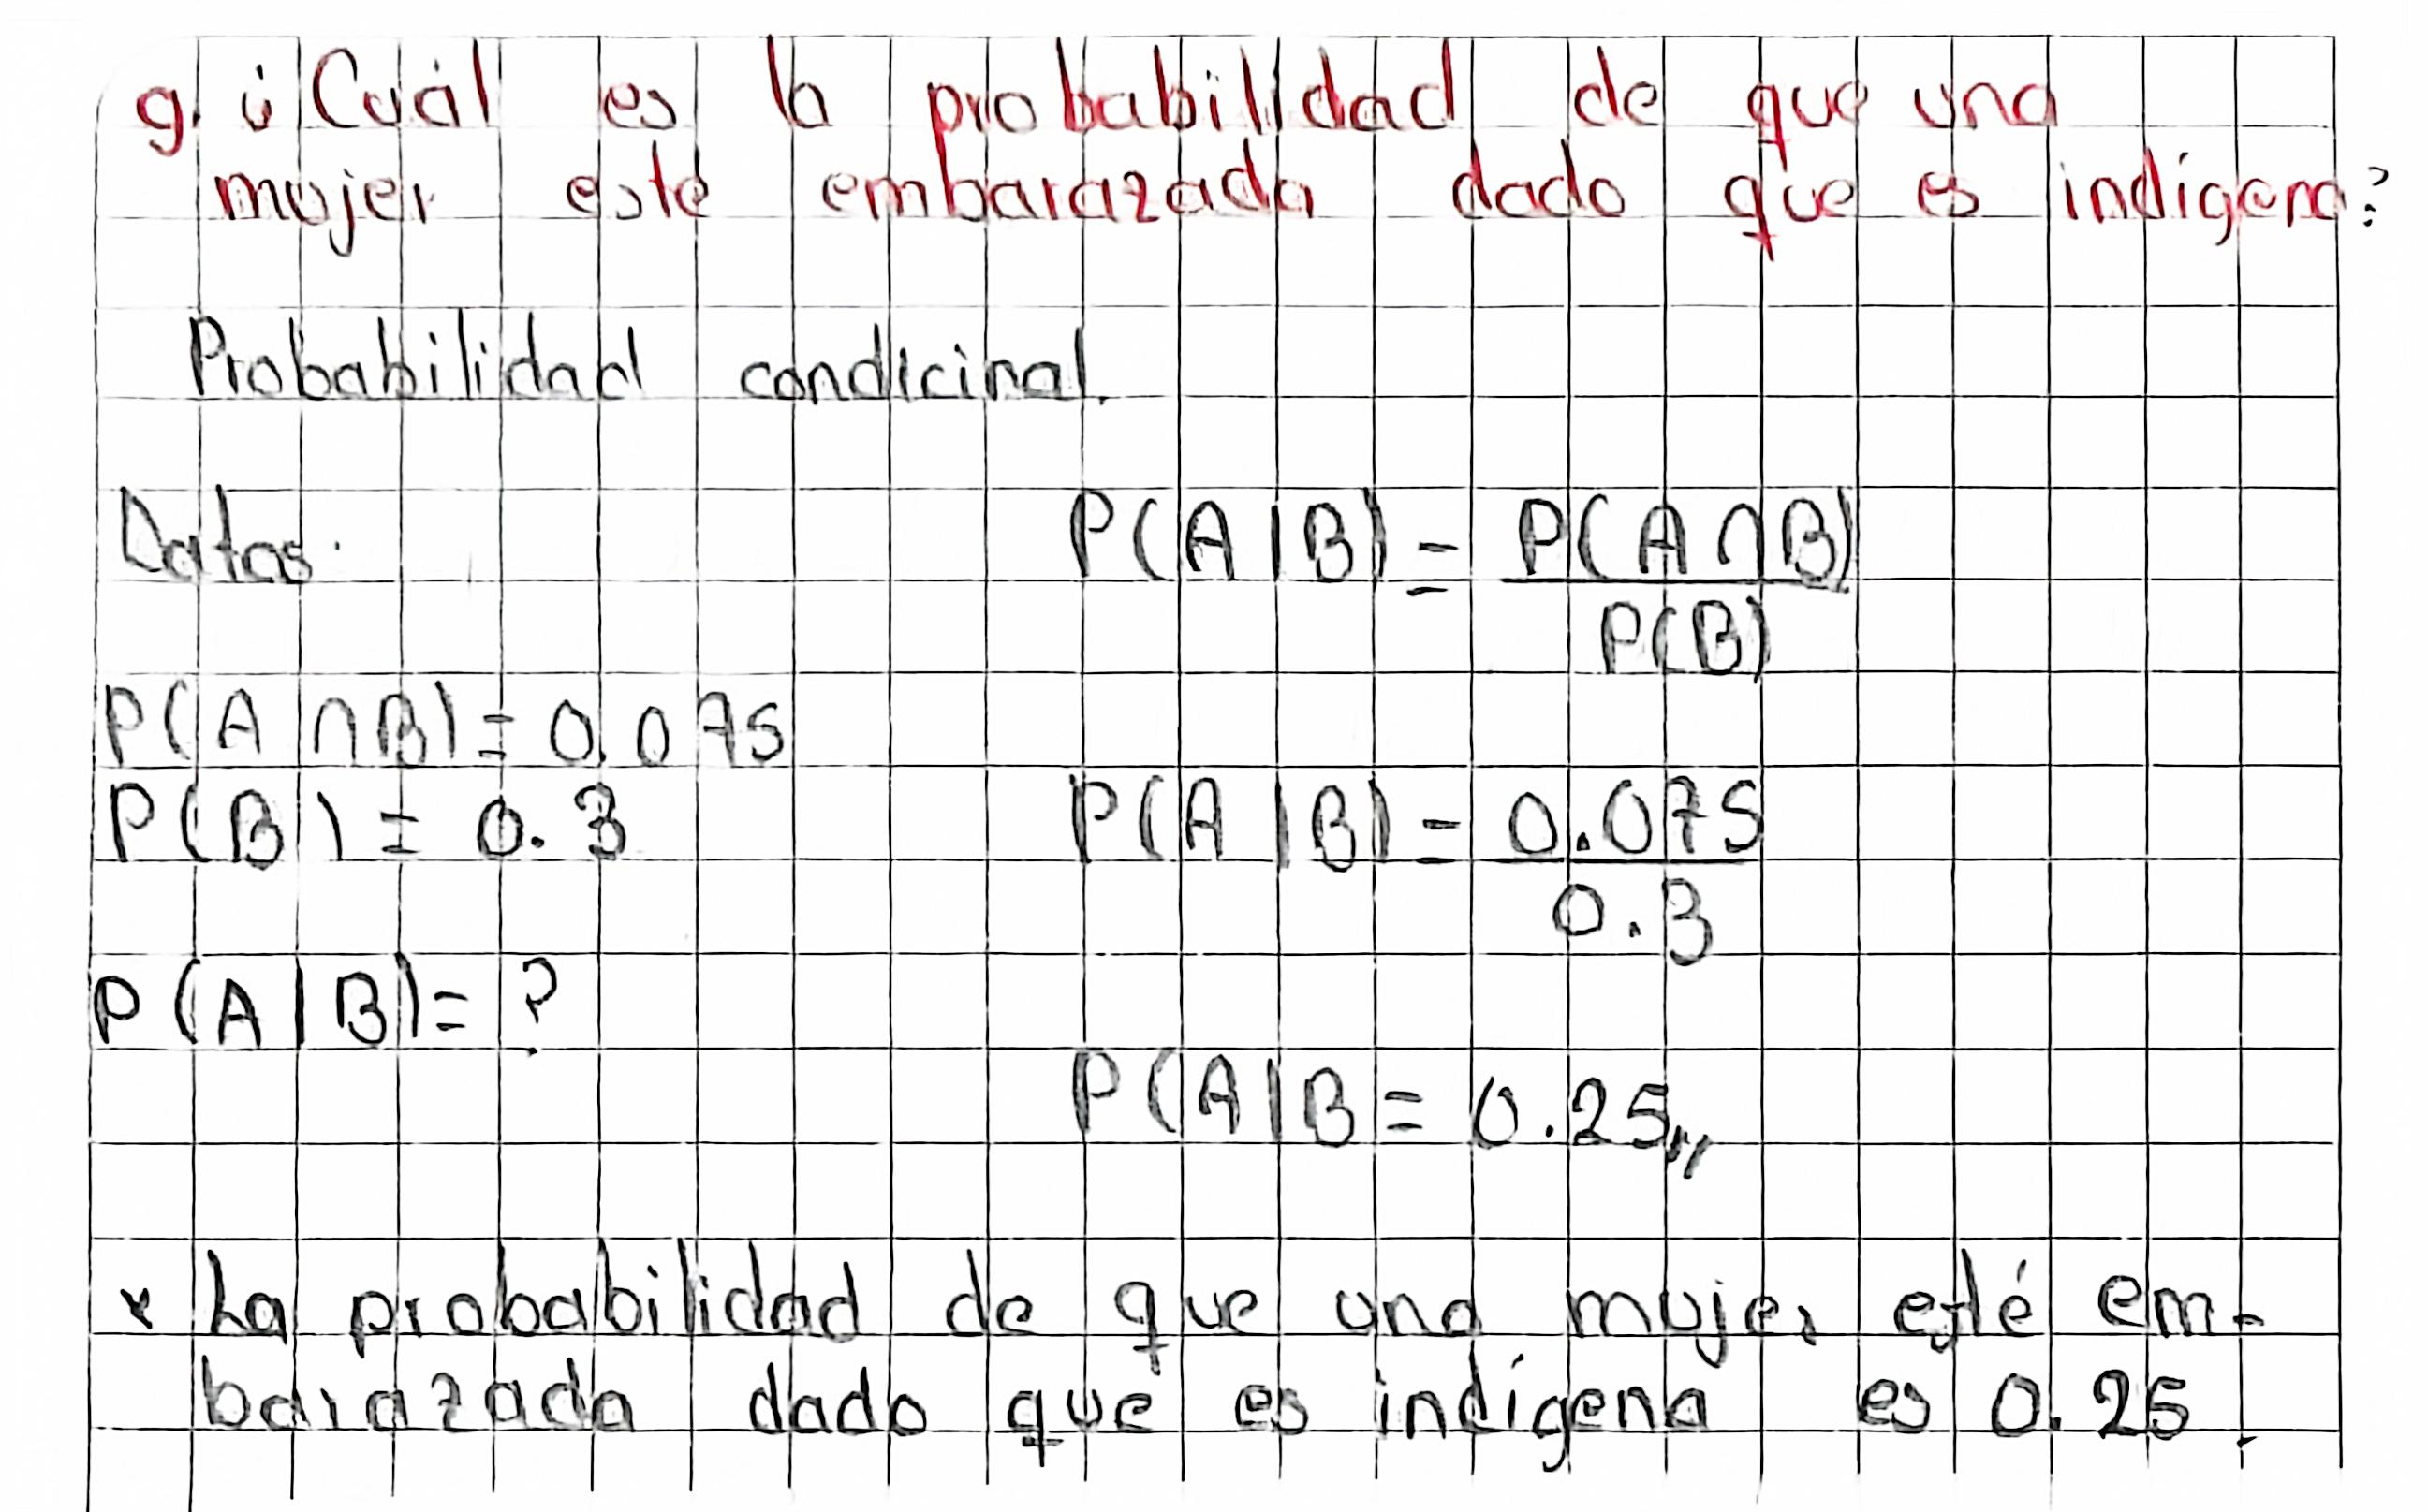 g. ¿Cuál es la probabilidad de que una
mujer esté embarazada dado que es indígena?
Probabilidad condicinal.
Datos.
P(A|B) = P(A∩B)
P(B)
P(A∩B) = 0.075
P(B) = 0.3
P(A|B) = 0.075
0.3
P(A|B) = ?
P(A|B = 0.25,,
* La probabilidad de que una mujer esté em-
barazada dado que es indígena es 0.25.